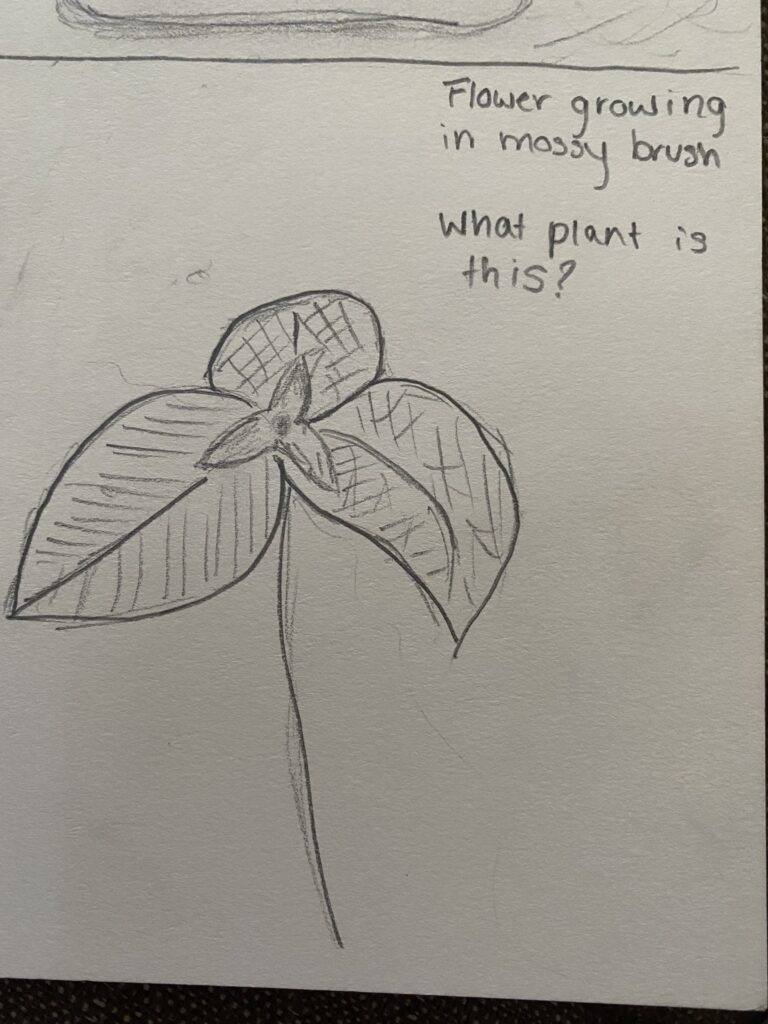 Flower growing
in mossy brush
What plant is
this?